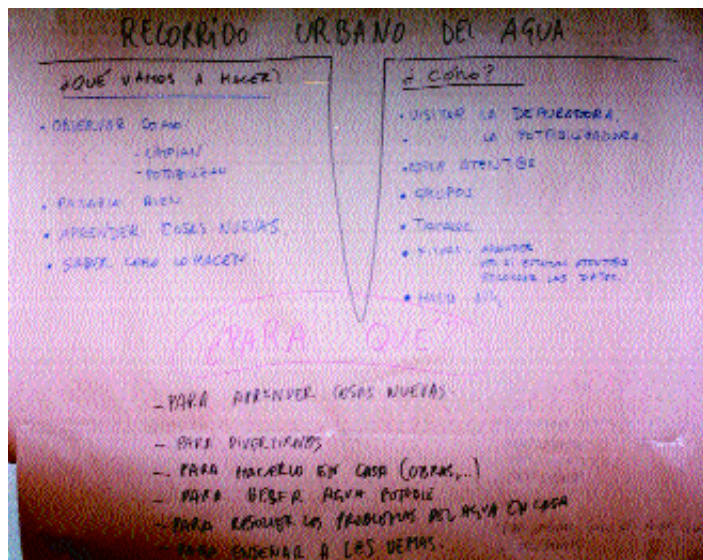 RECORRIDO URBANO DEL AGUA
¿QUÉ VAMOS A HACER?
• OBSERVAR COMO:
- LIMPIAN
- POTABILIZAN
• PASARLA BIEN
• APRENDER COSAS NUEVAS.
• SABER COMO LO HACEN.
¿CÓMO?
• VISITAR LA DEPURADORA.
• " LA POTABILIZADORA.
ATENT@S
• GRUPOS
• 
ESTAMOS ATENTOS
LOS DATOS.
¿PARA QUÉ?
- PARA APRENDER COSAS NUEVAS.
- PARA DIVERTIRNOS
- PARA HACERLO EN CASA (OBRAS,..)
- PARA BEBER AGUA POTABLE
- PARA RESOLVER LOS PROBLEMAS DEL AGUA EN CASA
- PARA ENSEÑAR A LES DEMAS.